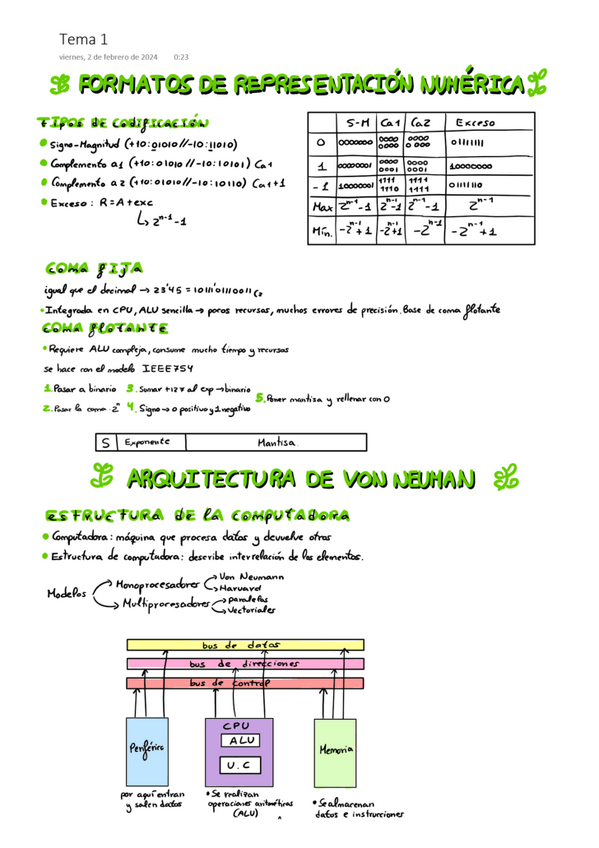 Tema 1
viernes, 2 de febrero de 2024 0:23
FORMATOS DE REPRESENTACIÓN NUMÉRICA
tipos de codificación
Signo-Magnitud (+10:01010//-10:11010)
Complemento a1 (+10:01010//-10:10101) Ca1
Complemento a2 (+10:01010//-10:10110) Ca1+1
Exceso: R=A+exc
↳ 2ⁿ⁻¹-1
S-M Ca1 Ca2 Exceso
0 0000000 0000 0000 0000 0000 01111111
1 00000001 0000 0001 0000 0001 10000000
-1 10000001 1111 1110 1111 1111 01111110
Max 2ⁿ⁻¹-1 2ⁿ⁻¹-1 2ⁿ⁻¹-1 2ⁿ⁻¹
Mín. -2ⁿ⁻¹+1 -2ⁿ⁻¹+1 -2ⁿ⁻¹ -2ⁿ⁻¹+1
COMA FIJA
igual que el decimal → 23'45 = 10111'01110011(2
Integrada en CPU, ALU sencilla → pocos recursos, muchos errores de precisión. Base de coma flotante
COMA flotante
Requiere ALU compleja, consume mucho tiempo y recursos
se hace con el modelo IEEE754
1. Pasar a binario 3. Sumar +127 al exp → binario
2. Pasar la coma ·2ⁿ 4. Signo → 0 positivo y 1 negativo
5. Poner mantisa y rellenar con 0
S Exponente Mantisa.
ARQUITECTURA DE VON NEUMAN
ESTRUCTURA DE LA COMPUTADORA
Computadora: máquina que procesa datos y devuelve otros
Estructura de computadora: describe interrelación de los elementos.
Modelos
Monoprocesadores
Von Neumann
Harvard
Multiprocesadores
paralelos
Vectoriales
bus de datos
bus de direcciones
bus de control
Periférico
CPU
ALU
U.C
Memoria
por aquí entran
y salen datos
Se realizan
operaciones aritméticas
(ALU)
Se almacenan
datos e instrucciones